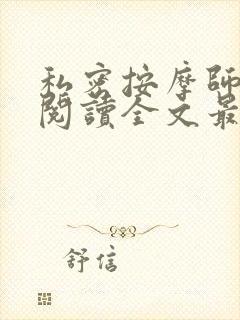 私密按摩師
閱讀全文最
舒信